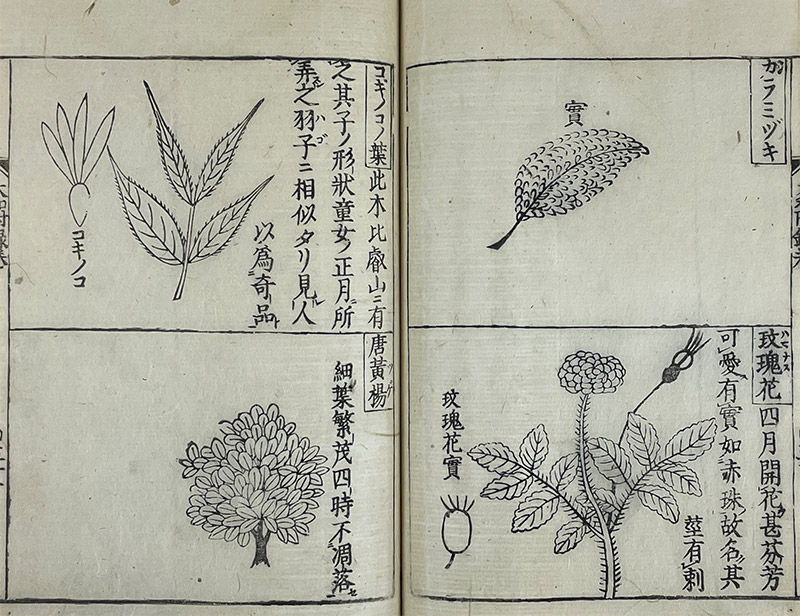 カラミヅキ
實
玫瑰花 四月開花甚芬芳
可愛有實如赤珠故名其
莖有刺
玫瑰花實
コキノコノ葉 此木比叡山ニ有
之其子ノ形狀童女ノ正月所
弄之羽子ニ相似タリ見人
以爲奇品
コキノコ
唐黄楊
細葉繁茂四時不凋落